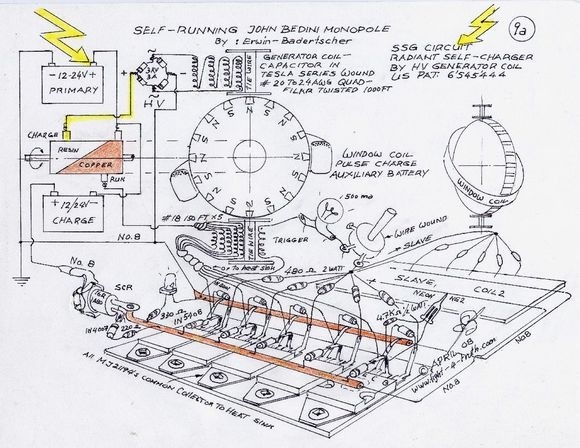 SELF-RUNNING JOHN BEDINI MONOPOLE
By: Erwin-Badertscher
9a
SSG CIRCUIT
RADIANT SELF-CHARGER
BY HV GENERATOR COIL
US PAT: 6'545'444
- 12-24V +
PRIMARY
HV
TIE WIRE
GENERATOR COIL-
CAPACITOR IN
TESLA SERIES WOUND
# 20 TO 24 AWG QUAD-
FILAR TWISTED 1000FT
CHARGE
RESIN
COPPER
RUN
+ 12/24V -
CHARGE
N S N S N S N S
WINDOW COIL
PULSE CHARGE
AUXILIARY BATTERY
WINDOW COIL
#18 150 FT x5
TIE WIRE
TRIGGER
500 ma
WIRE WOUND
SLAVE
No. 8
or to heat sink
480 Ω 2 WATT
No. 8
SCR
SLAVE
COIL 2
NEON
NE2
1N4007
220 Ω
330 Ω
1N5408
4.7K Ω 1/2 WATT
© APRIL 08
No 8
No. 8
All MJ21194's COMMON COLLECTOR TO HEAT SINK